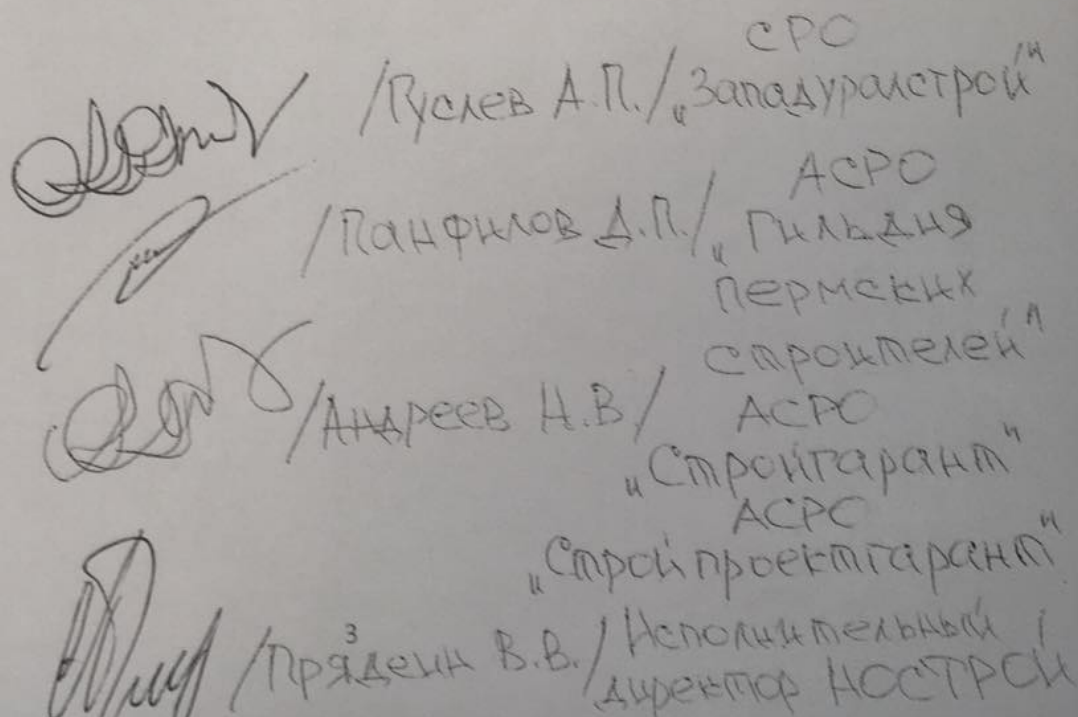 СРО
/Гуслев А.П./ „Западуралстрой"
АСРО
/Панфилов Д.П./ „Гильдия
пермских
строителей"
/Андреев Н.В/ АСРО
„Стройгарант"
АСРО
„Стройпроектгарант"
/Прядеин В.В./ Исполнительный
директор НОСТРОЙ